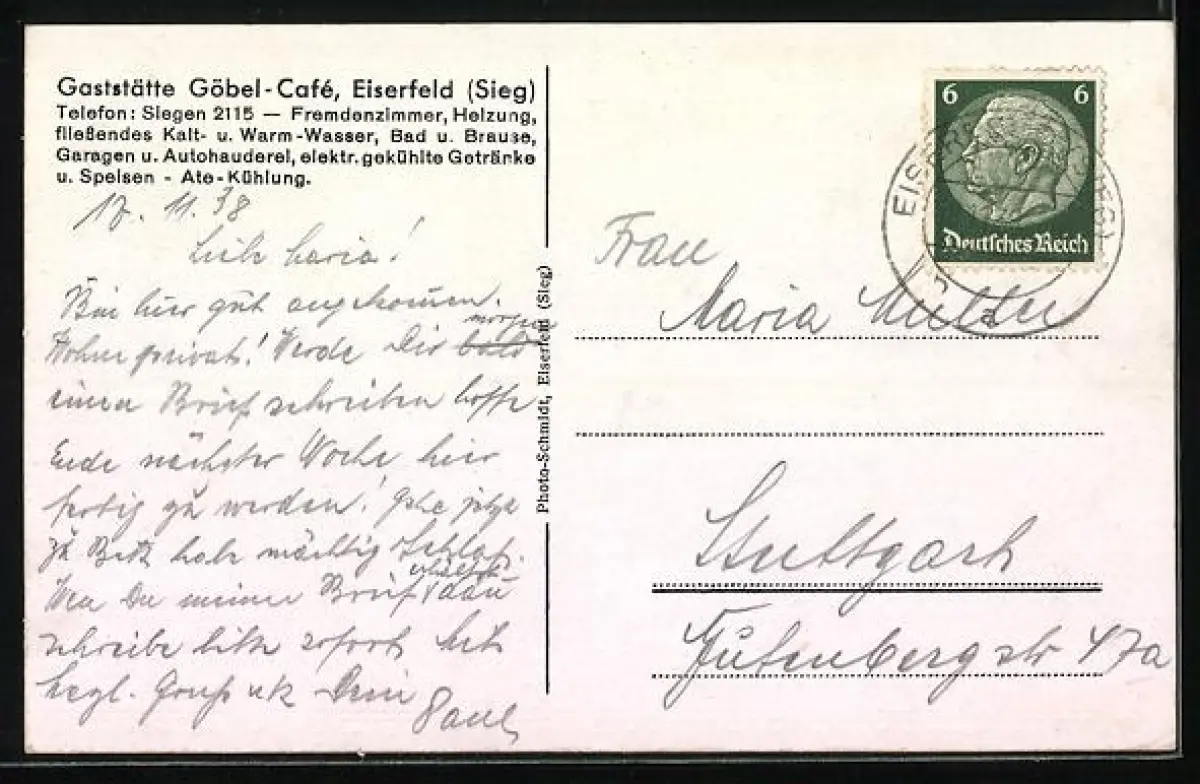 Gaststätte Göbel-Café, Eiserfeld (Sieg)
Telefon: Siegen 2115 — Fremdenzimmer, Heizung,
fließendes Kalt- u. Warm-Wasser, Bad u. Brause,
Garagen u. Autohauderei, elektr. gekühlte Getränke
u. Speisen - Ate-Kühlung.
17. 11. 38
Bin hier gut angekommen.
morgen
Wohne privat! Werde Dir bald
einen Brief schreiben hoffe
Ende nächster Woche hier
fertig zu werden! Gehe jetzt
zu Bett habe mächtig Schlaf.
erhältst
Wen Du meinen Brief dan
schreibe bitte sofort
herzl. Gruß u k Dein
Paul
Photo-Schmidt, Eiserfeld (Sieg)
6 6
Deutsches Reich
EISERFELD (SIEG)
a
Frau
Maria
Stuttgart
Gutenbergstr 47a